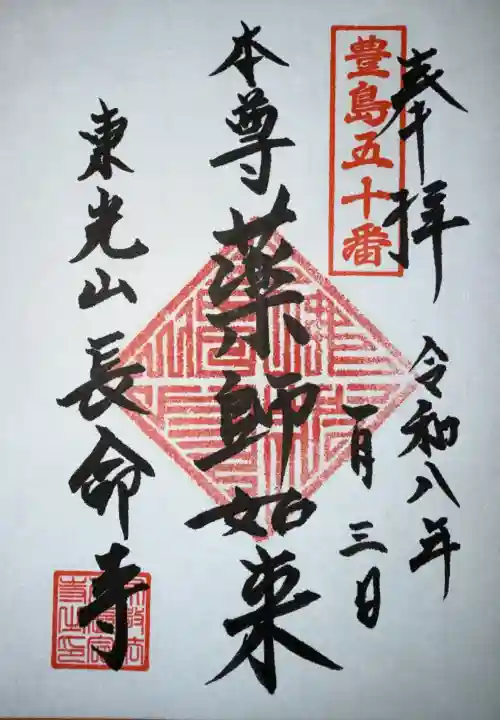 奉拝
豊島五十番
令和八年
一月三日
本尊薬師如来
東光山長命寺